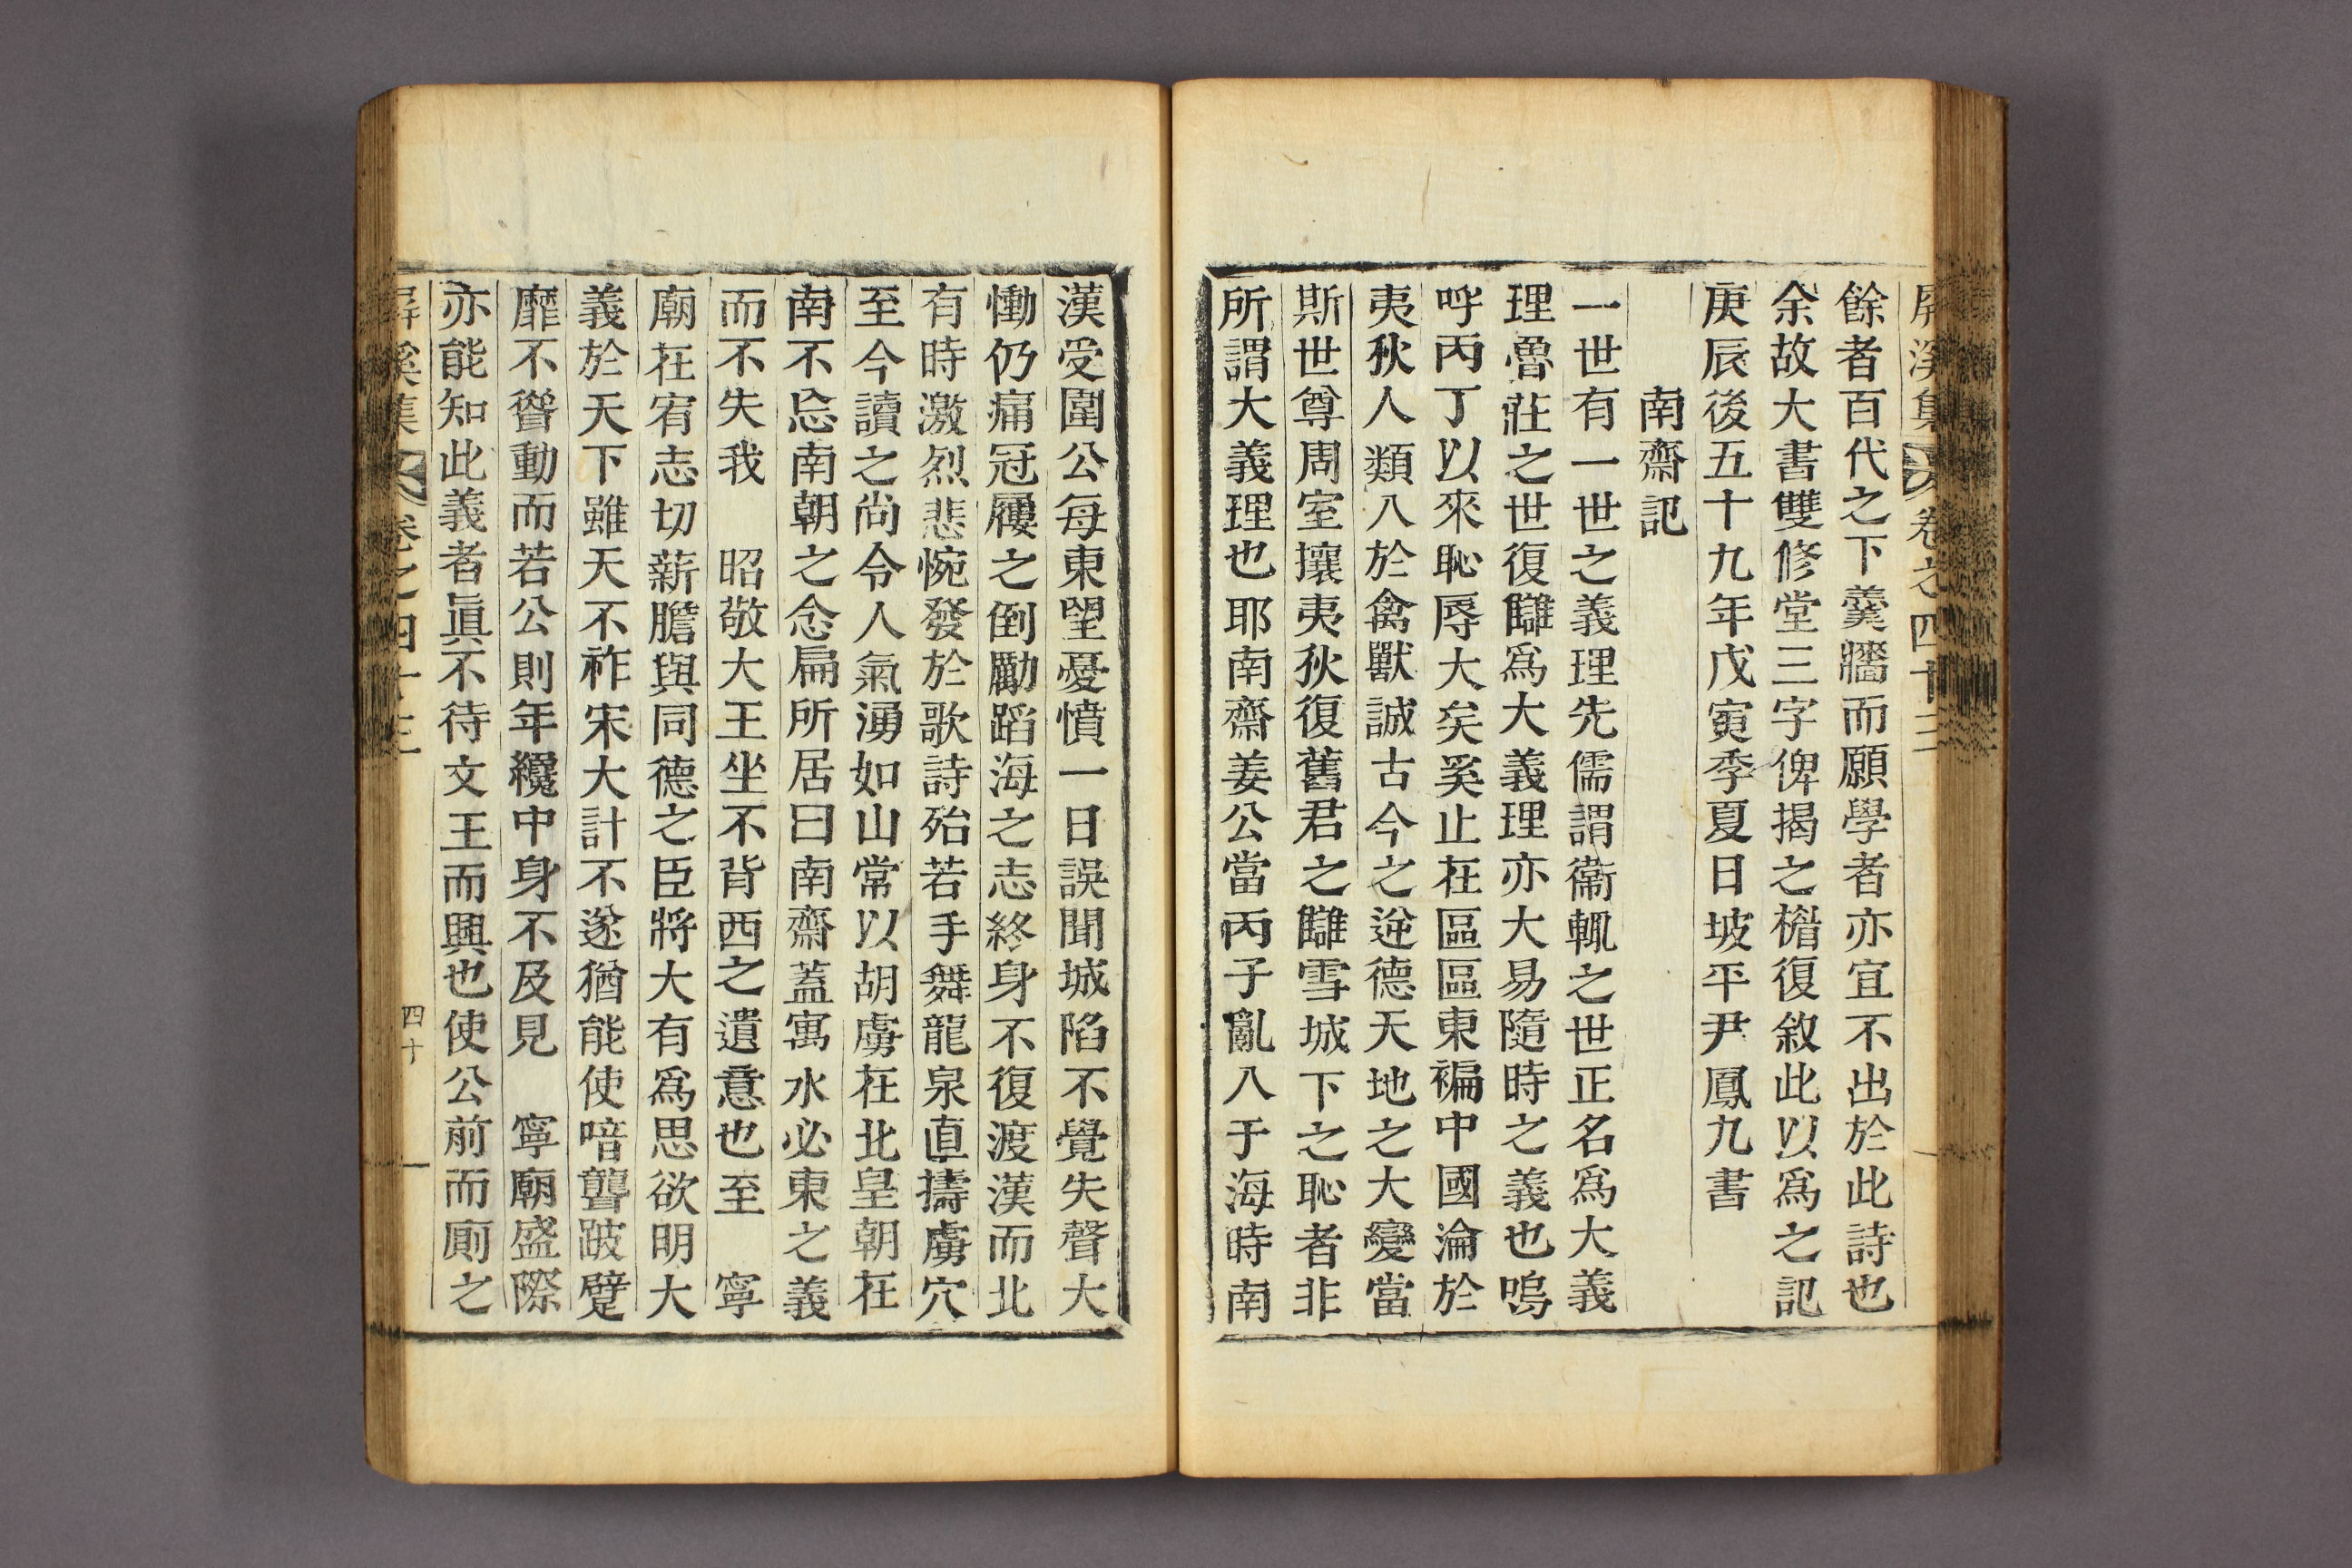 屏溪集 卷之四十三
餘者百代之下羹牆而願學者亦宜不出於此詩也
余故大書雙修堂三字俾揭之楣復敘此以爲之記
庚辰後五十九年戊寅季夏日坡平尹鳳九書
南齋記
一世有一世之義理先儒謂衞輒之世正名爲大義
理魯莊之世復讎爲大義理亦大易隨時之義也嗚
呼丙丁以來恥辱大矣奚止在區區東褊中國淪於
夷狄人類入於禽獸誠古今之逆德天地之大變當
斯世尊周室攘夷狄復舊君之讎雪城下之恥者非
所謂大義理也耶南齋姜公當丙子亂入于海時南
漢受圍公每東望憂憤一日誤聞城陷不覺失聲大
慟仍痛冠屨之倒勵蹈海之志終身不復渡漢而北
有時激烈悲惋發於歌詩殆若手舞龍泉直擣虜穴
至今讀之尚令人氣湧如山常以胡虜在北皇朝在
南不忘南朝之念扁所居曰南齋蓋寓水必東之義
而不失我 昭敬大王坐不背西之遺意也至 寧
廟在宥志切薪膽與同德之臣將大有爲思欲明大
義於天下雖天不祚宋大計不遂猶能使喑聾跛躄
靡不聳動而若公則年纔中身不及見 寧廟盛際
亦能知此義者眞不待文王而興也使公前而廁之
屏溪集 卷之四十三 四十一